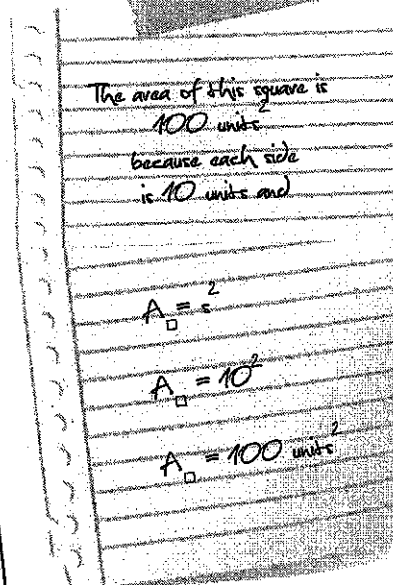 The area of this square is
100 units²
because each side
is 10 units and
A□ = s²
A□ = 10²
A□ = 100 units²